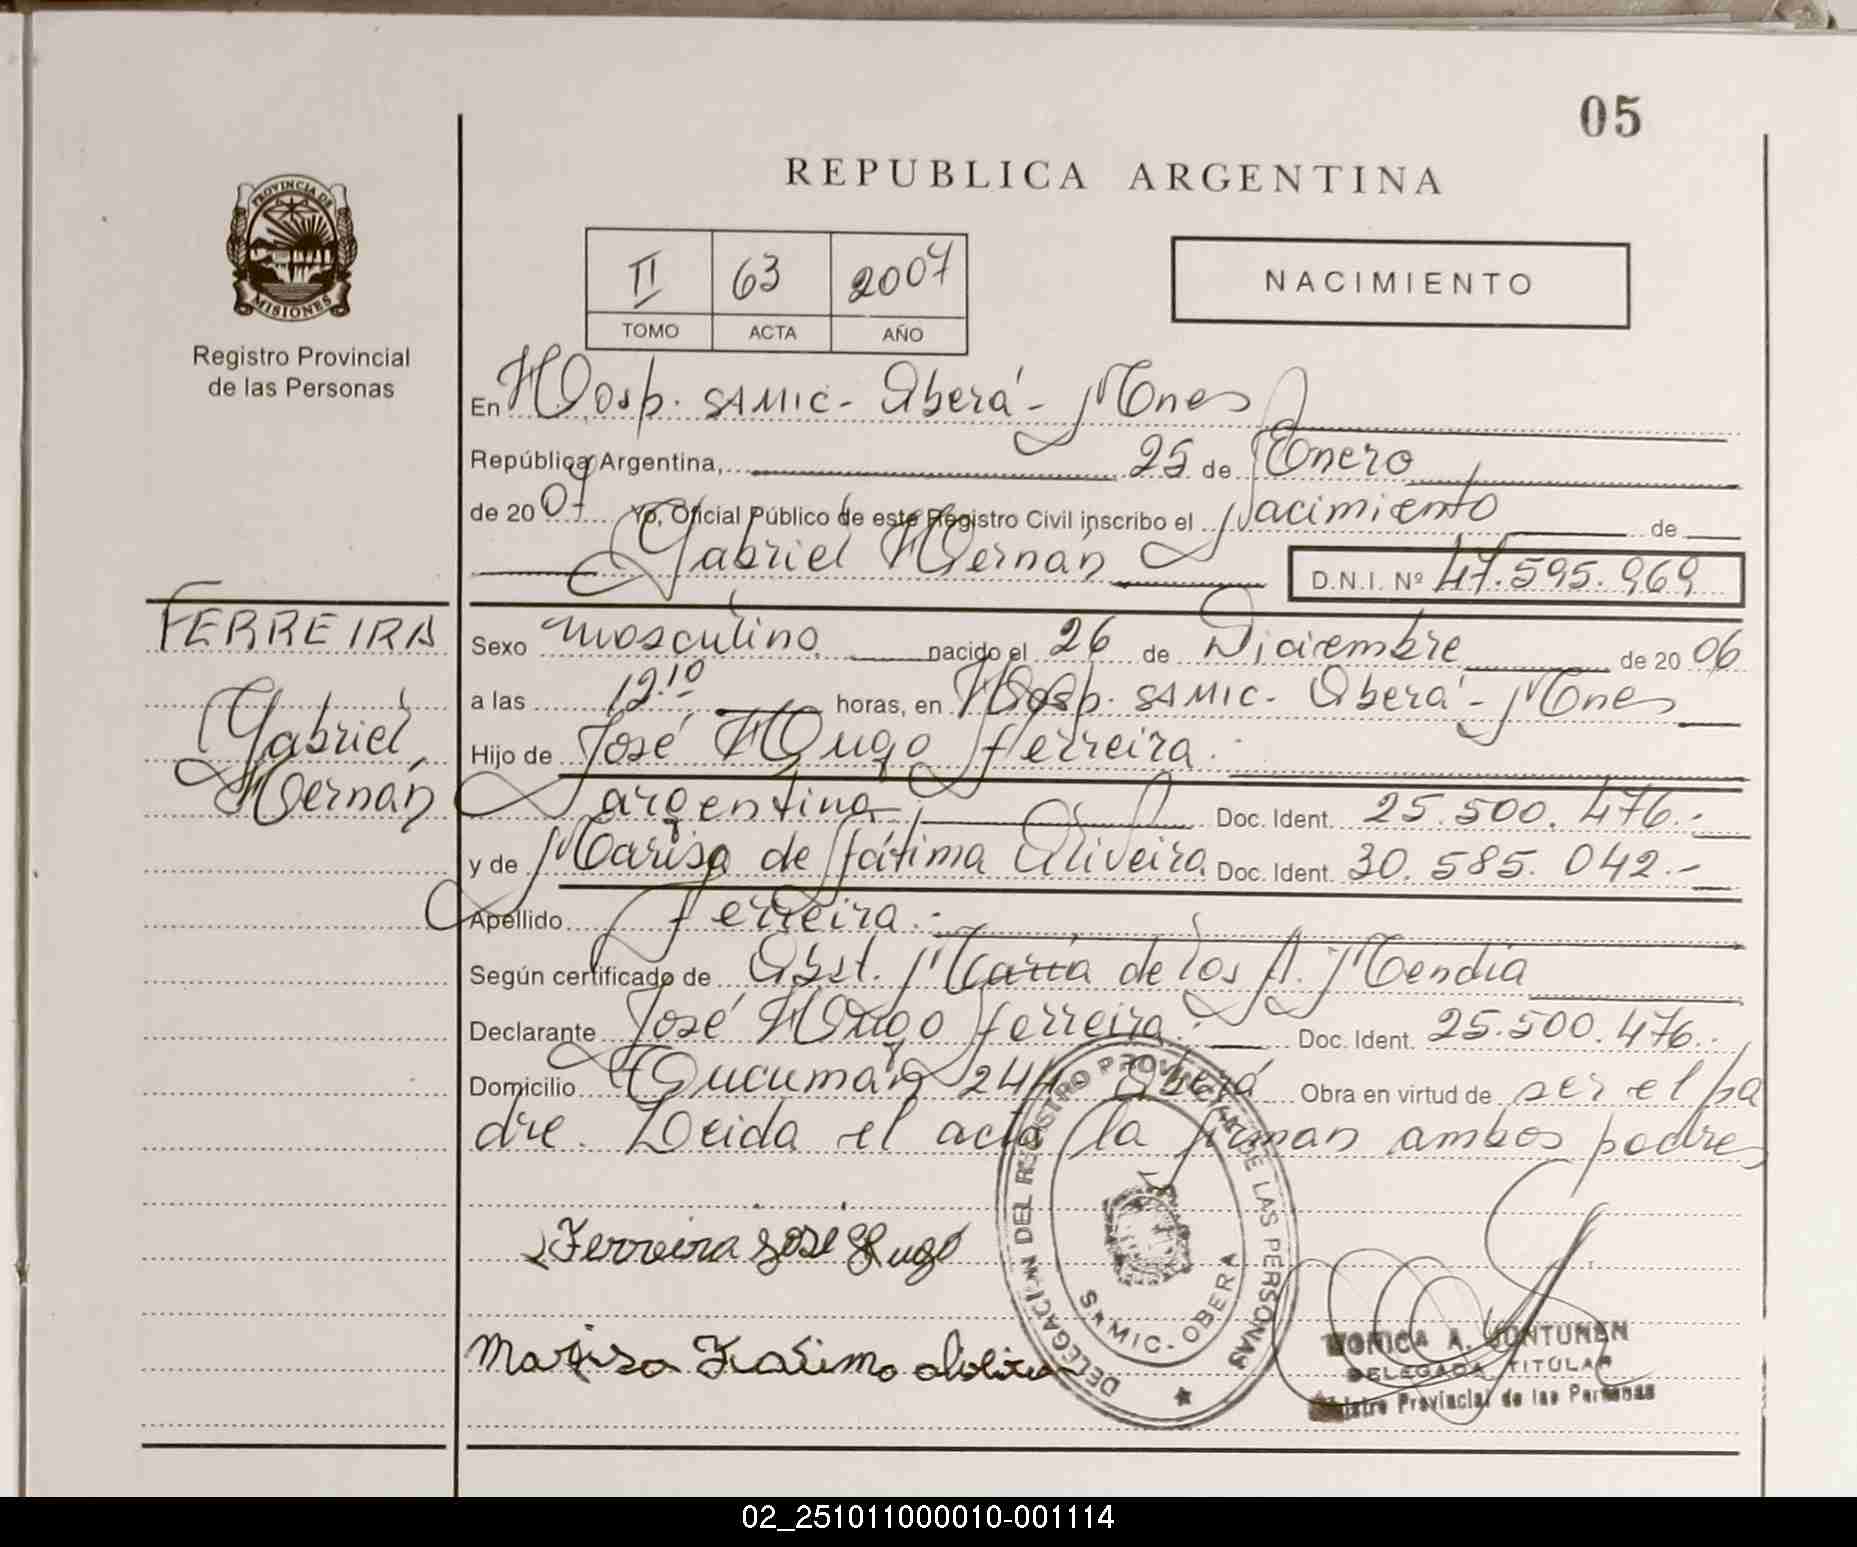 05
REPUBLICA ARGENTINA
PROVINCIA DE
MISIONES
Registro Provincial
de las Personas
II 63 2007
TOMO ACTA AÑO
NACIMIENTO
En Hosp. SAMIC - Oberá - Mnes
República Argentina, 25 de Enero
de 2007 Yo, Oficial Público de este Registro Civil inscribo el Nacimiento de
Gabriel Hernán D.N.I. Nº 47.595.969
FERREIRA
Gabriel
Hernán
Sexo masculino nacido el 26 de Diciembre de 2006
a las 12.10 horas, en Hosp. SAMIC - Oberá - Mnes
Hijo de José Hugo Ferreira.
argentina Doc. Ident. 25.500.476.-
y de Marisa de Fátima Oliveira Doc. Ident. 30.585.042.-
Apellido Ferreira.
Según certificado de Obst. María de los A. Mendia
Declarante José Hugo Ferreira. Doc. Ident. 25.500.476.
Domicilio Tucumán 244 Oberá Obra en virtud de ser el pa
dre. Leida el acta la firman ambos padres
Ferreira José Hugo
Marisa Fatima
DELEGACION DEL REGISTRO PROVINCIAL DE LAS PERSONAS
SAMIC - OBERA
MONICA A. JONTUNEN
DELEGADA TITULAR
Registro Provincial de las Personas
02_251011000010-001114